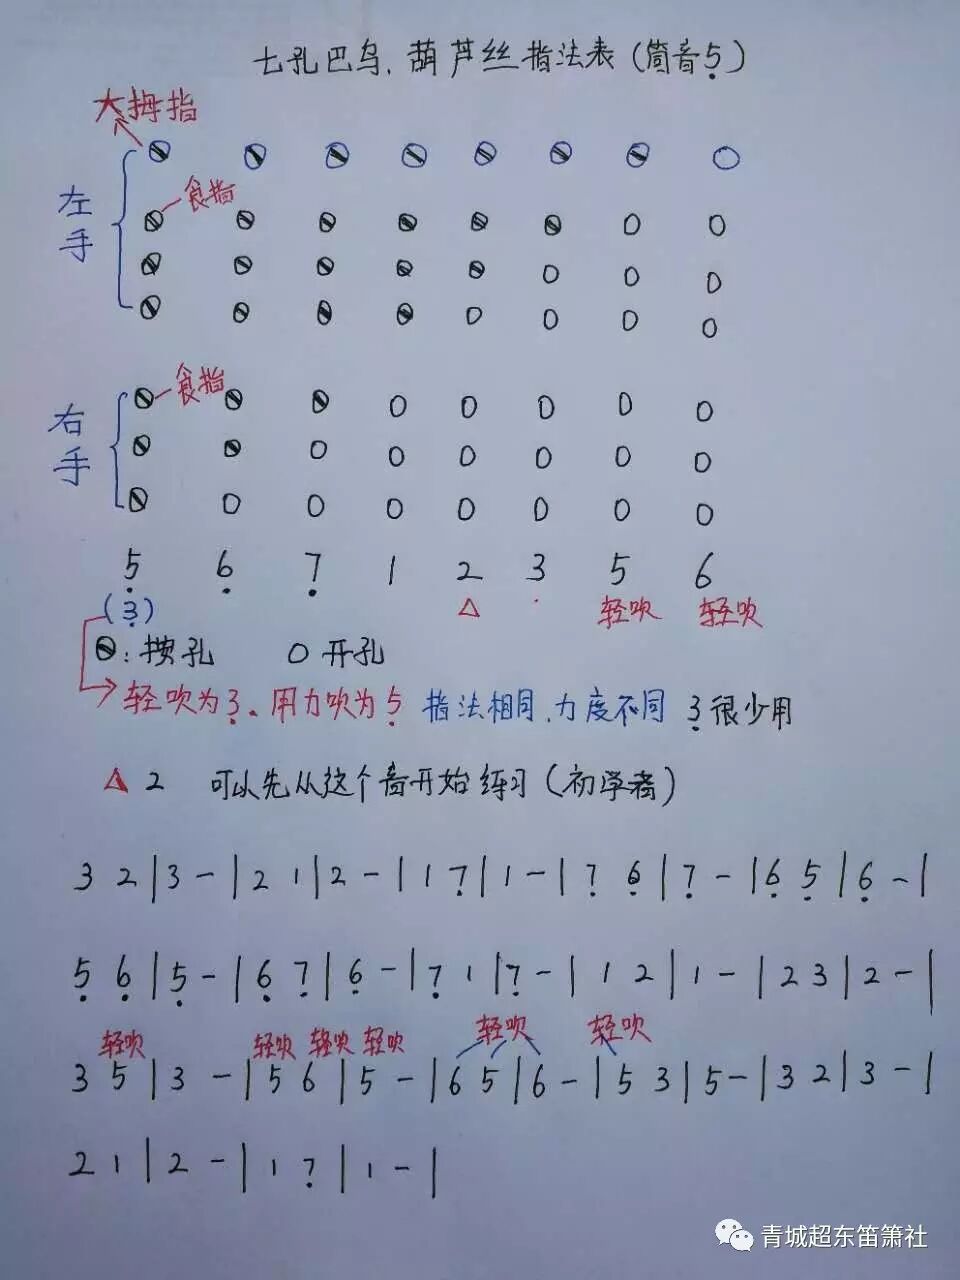 七孔巴乌、葫芦丝指法表(筒音5̣)
大拇指
左手
食指
右手
食指
5̣ 6̣ 7̣ 1 2 3 5 6
(3̣) △ 轻吹 轻吹
⊘:按孔 O 开孔
轻吹为3̣、用力吹为5̣ 指法相同、力度不同 3̣很少用
△ 2 可以先从这个音开始练习(初学者)
3 2 | 3 - | 2 1 | 2 - | 1 7̣ | 1 - | 7̣ 6̣ | 7̣ - | 6̣ 5̣ | 6̣ - |
5̣ 6̣ | 5̣ - | 6̣ 7̣ | 6̣ - | 7̣ 1 | 7̣ - | 1 2 | 1 - | 2 3 | 2 - |
轻吹 轻吹 轻吹 轻吹 轻吹 轻吹
3 5 | 3 - | 5 6 | 5 - | 6 5 | 6 - | 5 3 | 5 - | 3 2 | 3 - |
2 1 | 2 - | 1 7̣ | 1 - |
青城超东笛箫社